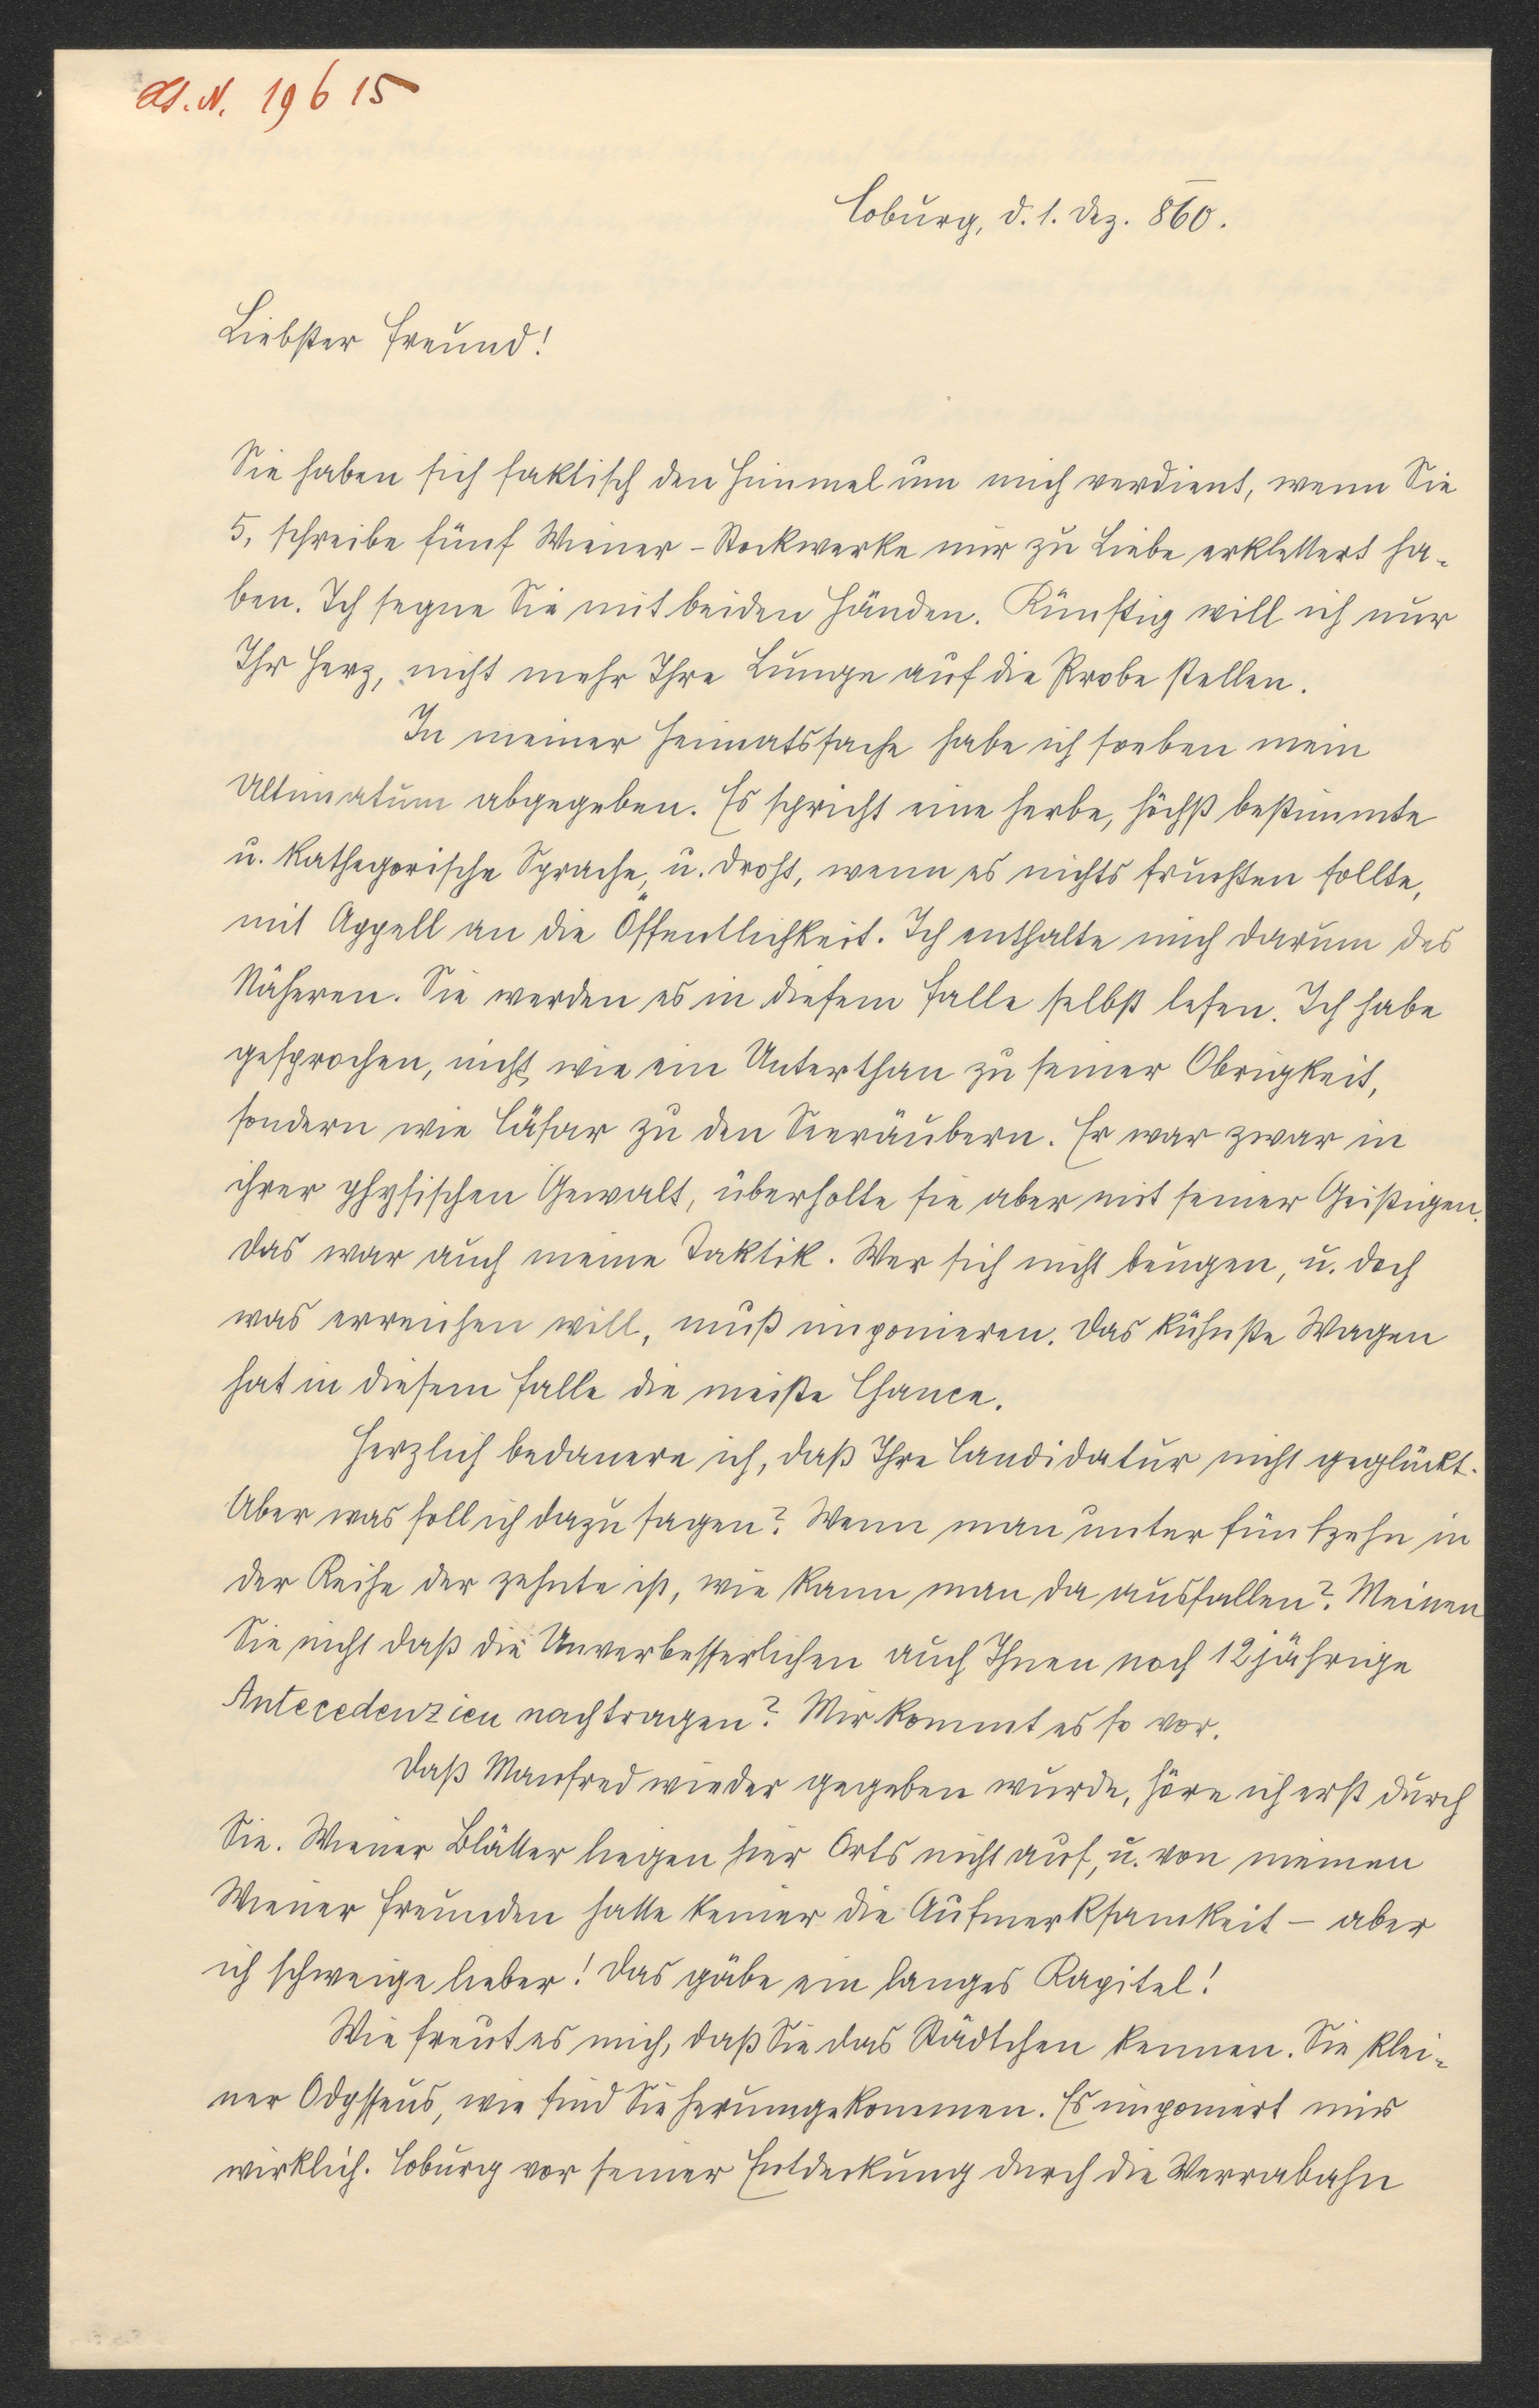 H.I.N. 19615
Coburg, d. 1. Dez. 860.
Liebster Freund!
Sie haben sich faktisch den Himmel um mich verdient, wenn Sie
5, schreibe fünf Wiener-Stockwerke mir zu Liebe erklettert ha-
ben. Ich segne Sie mit beiden Händen. Künftig will ich nur
Ihr Herz, nicht mehr Ihre Lunge auf die Probe stellen.
In meiner Heimatssache habe ich soeben mein
Ultimatum abgegeben. Es spricht eine herbe, höchst bestimmte
u. kathegorische Sprache, u. droht, wenn es nichts fruchten sollte,
mit Appell an die Öffentlichkeit. Ich enthalte mich darum des
Näheren. Sie werden es in diesem Falle selbst lesen. Ich habe
gesprochen, nicht wie ein Unterthan zu seiner Obrigkeit,
sondern wie Cäsar zu den Seeräubern. Er war zwar in
ihrer physischen Gewalt, überholte sie aber mit seiner Geistigen.
Das war auch meine Taktik. Wer sich nicht beugen, u. doch
was erreichen will, muß imponieren. Das kühnste Wagen
hat in diesem Falle die meiste Chance.
Herzlich bedauere ich, daß Ihre Candidatur nicht geglückt.
Aber was soll ich dazu sagen? Wenn man unter fünfzehn in
der Reihe der zehnte ist, wie kann man da ausfallen? Meinen
Sie nicht daß die Unverbesserlichen auch Ihnen noch 12jährige
Antecedenzien nachtragen? Mir kommt es so vor.
Daß Manfred wieder gegeben wurde, höre ich erst durch
Sie. Wiener Blätter liegen hier Orts nicht auf, u. von meinen
Wiener Freunden hatte keiner die Aufmerksamkeit – aber
ich schweige lieber! Das gäbe ein langes Kapitel!
Wie freut es mich, daß Sie das Städtchen kennen. Sie klei-
ner Odysseus, wie sind Sie herumgekommen. Es imponiert mir
wirklich. Coburg vor seiner Entdeckung durch die Werrabahn